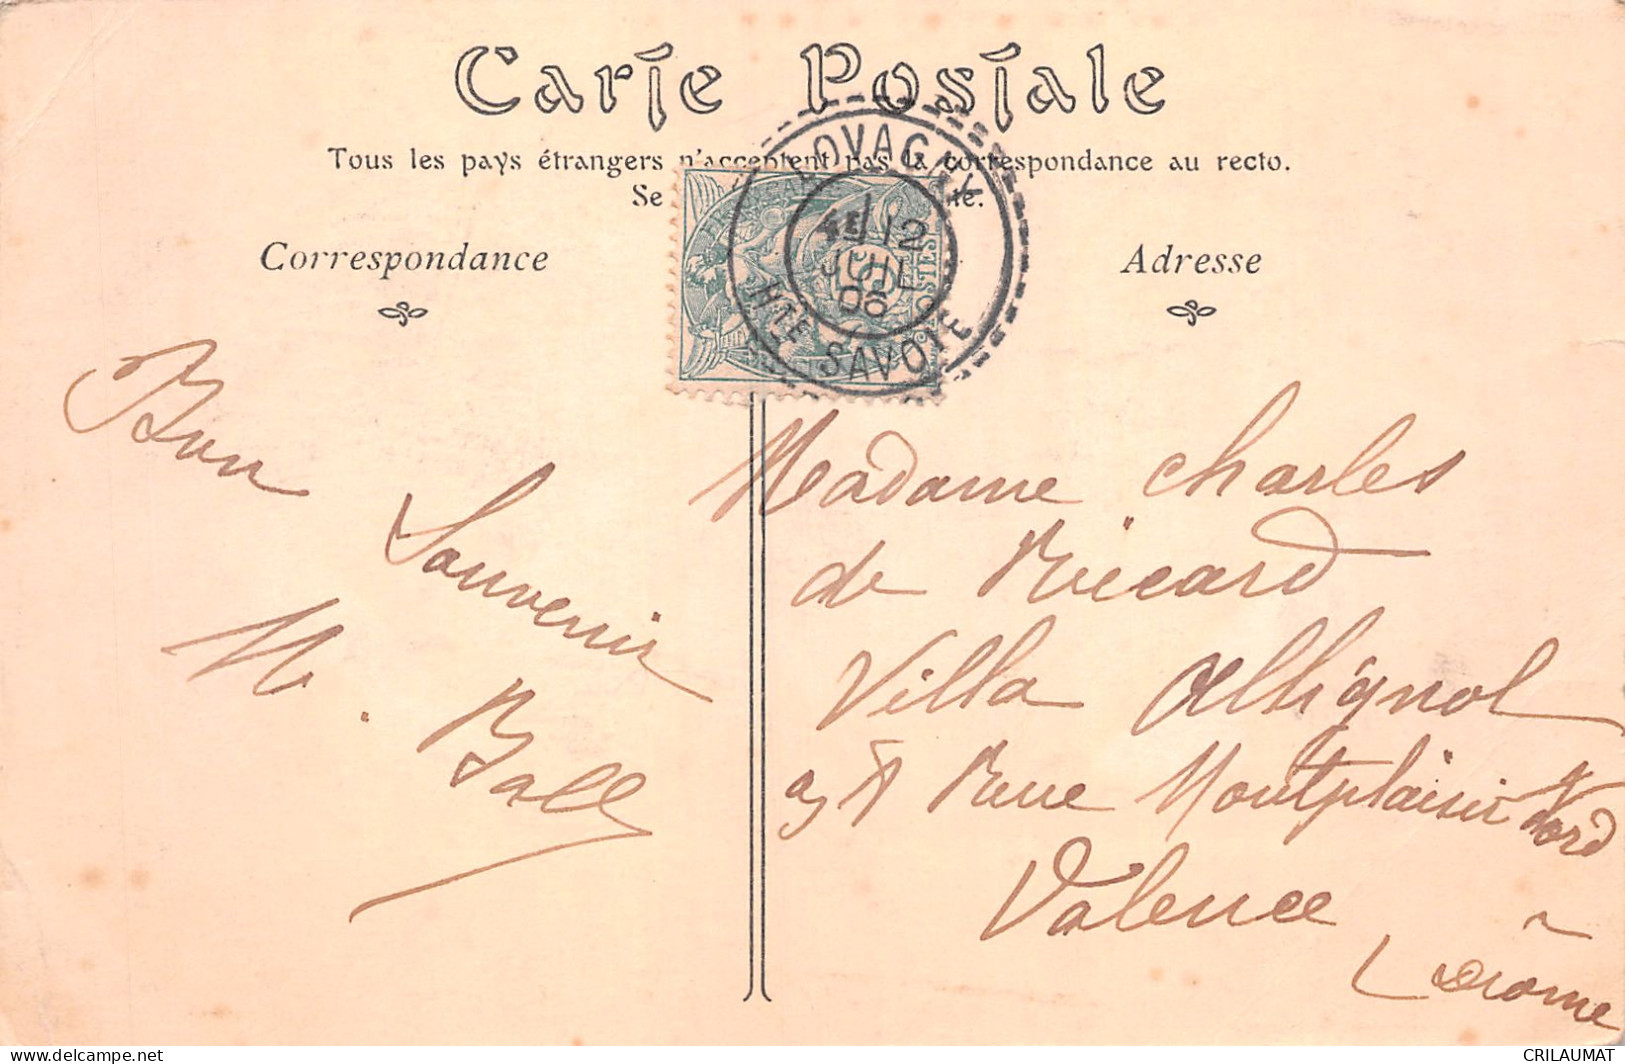 Carte Postale
Tous les pays étrangers n'acceptent pas la correspondance au recto.
Se
te.
Correspondance
Adresse
LOVAGNY
12
JUIL
06
HTE SAVOIE
POSTES
Bon
Souvenir
M. Ball
Madame Charles
de Ricard
Villa Allignol
Rue Montplaisir
Nord
Valence
Drôme
delcampe.net
CRILAUMAT